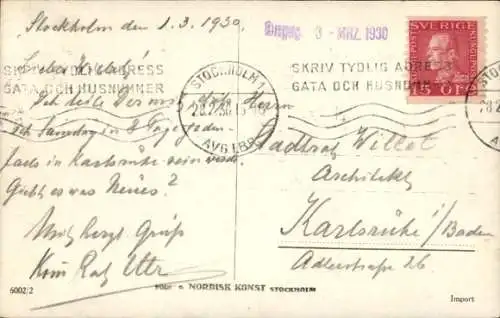 Stockholm den 1.3.1930.
Lieber Willet!
Ich teile Dir mit, dass
ich Samstag in 8 Tagen jeden-
falls in Karlsruhe sein werde.
Giebt es was Neues?
Mit herzl. Gruß
Eingeg. 3 - MRZ. 1930
SKRIV TYDLIG ADRESS
GATA OCH HUSNUMMER
STOCKHOLM 1
AVG
SKRIV TYDLIG ADRESS
GATA OCH HUSNUMMER
SVERIGE
15 ÖRE
Herrn
Stadtrat Willet
Architekt
Karlsruhe i/Baden
Adlerstraße 26
6002/2
NORDISK KONST STOCKHOLM
Import